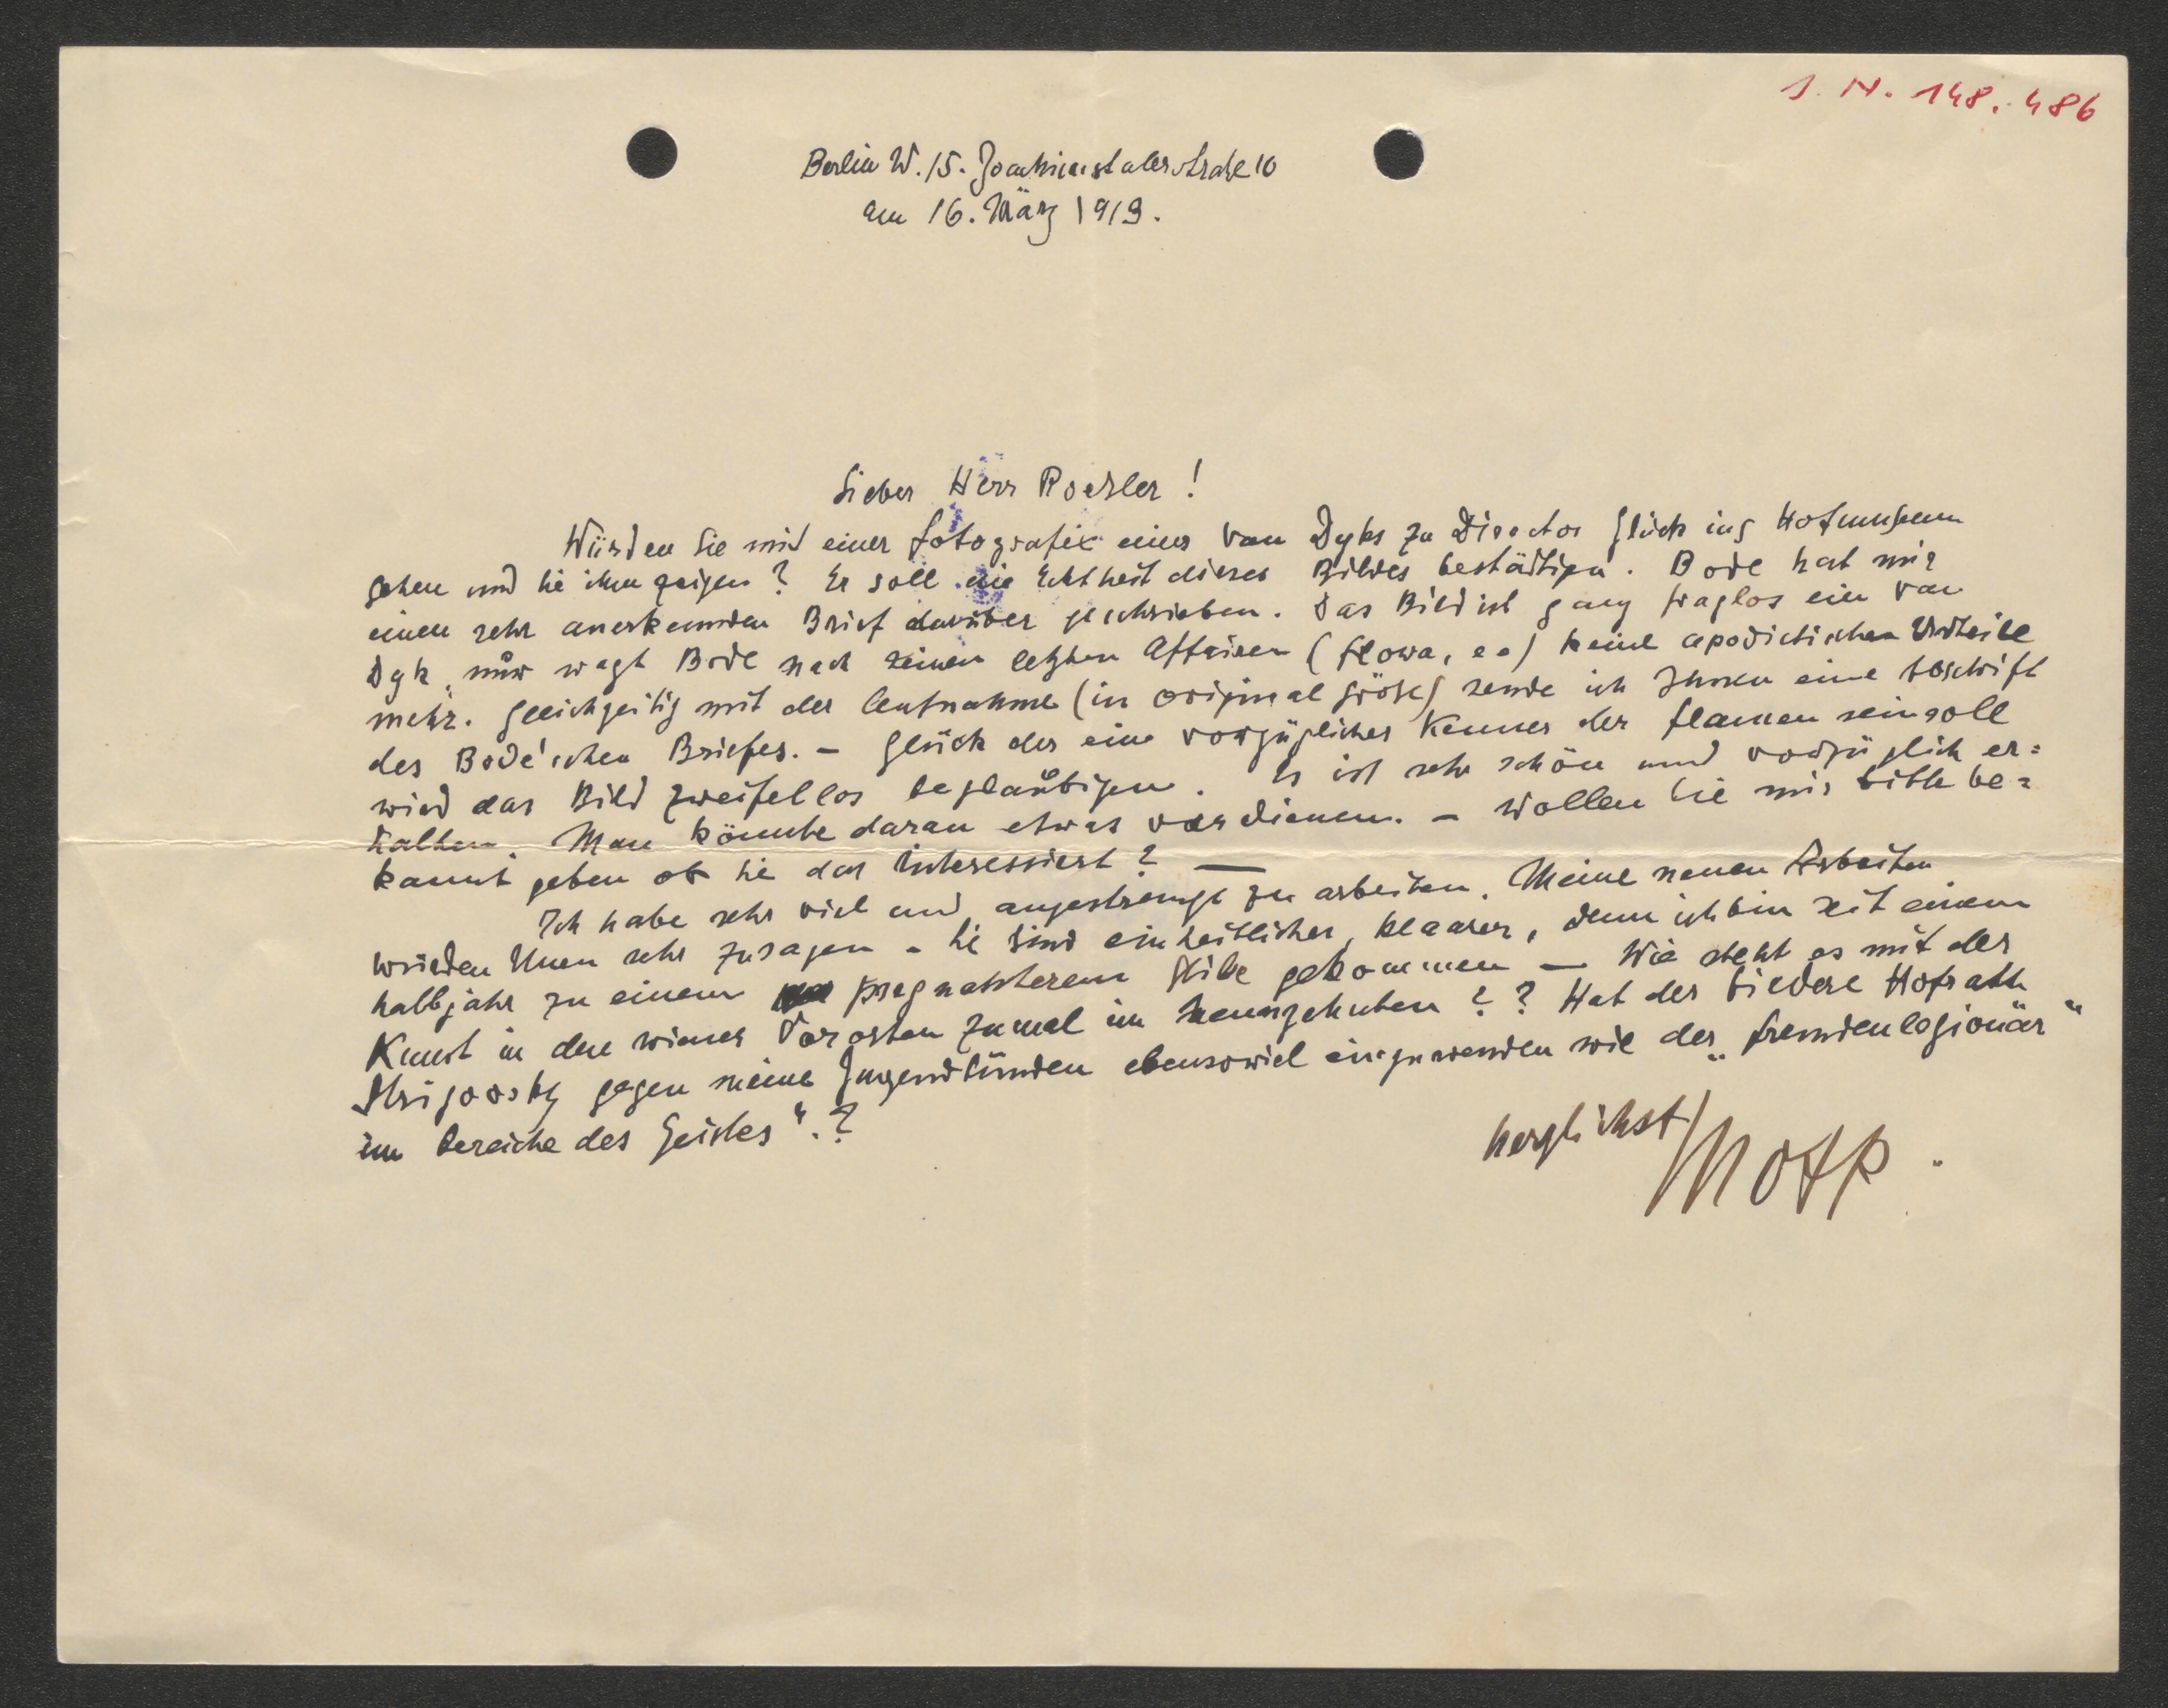 I. N. 148.486
Berlin W. 15. Joachimstalerstraße 10
am 16. März 1913.
Lieber Herr Roessler!
Würden Sie mit einer Fotografie eines Van Dyks zu Director Glück ins Hofmuseum
gehen und sie ihm zeigen? Er soll die Echtheit dieses Bildes bestättigen. Bode hat mir
einen sehr anerkennden Brief darüber geschrieben. Das Bild ist ganz fraglos ein Van
Dyk, nur wagt Bode nach seinen letzten Affairen (Flora, ) keine apodictischen Urteile
mehr. Gleichzeitig mit der Aufnahme (in original gröse) sende ich Ihnen eine Abschrift
des Bode'schen Briefes. – Glück der eine vorzüglicher Kenner der Flamen sein soll
wird das Bild zweifellos beglaubigen. Es ist sehr schön und vorzüglich er=
halten. Man könnte daran etwas verdienen. – Wollen Sie mir bitte be=
kannt geben ob Sie das interessiert? —
Ich habe sehr viel und angestrengt zu arbeiten. Meine neuen Arbeiten
würden Ihnen sehr zusagen – Sie sind einheitlicher, klaarer, denn ich bin seit einem
halbjahr zu einem pregnanterem Stile gekommen — Wie steht es mit der
Kunst in den wiener Vororten zumal im neunzehnten?? Hat der biedere Hofrath
Strigovsky gegen meine Jugendsünden ebensoviel einzuwenden wie der „Fremdenlegionär
im Bereiche des Geistes“.?
herzlichst
Mopp.